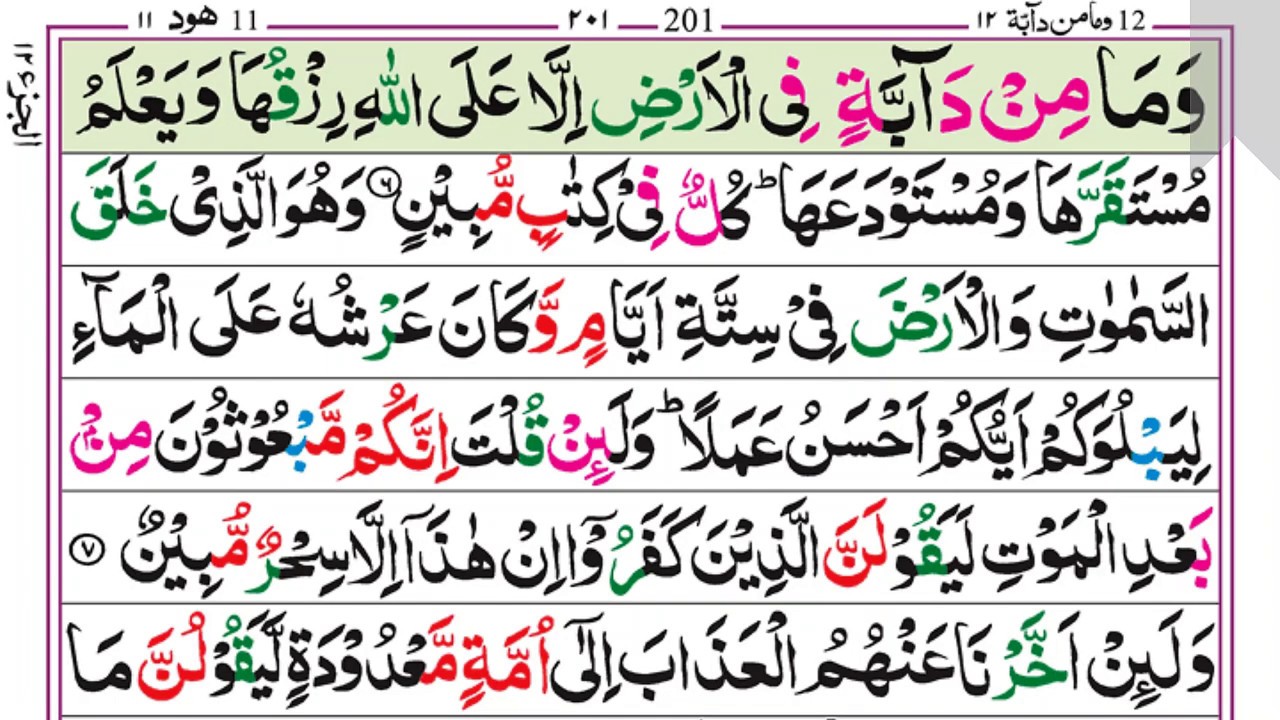 12 ومامن دآبّة ١٢ 201 ٢٠١ 11 هود ١١
وَمَا مِنْ دَآبَّةٍ فِى الْاَرْضِ اِلَّا عَلَى اللّٰهِ رِزْقُهَا وَيَعْلَمُ
مُسْتَقَرَّهَا وَمُسْتَوْدَعَهَا ؕ كُلٌّ فِىْ كِتٰبٍ مُّبِيْنٍ ۶ وَهُوَ الَّذِىْ خَلَقَ
السَّمٰوٰتِ وَالْاَرْضَ فِىْ سِتَّةِ اَيَّامٍ وَّكَانَ عَرْشُهٗ عَلَى الْمَآءِ
لِيَبْلُوَكُمْ اَيُّكُمْ اَحْسَنُ عَمَلًا ؕ وَلَٮِٕنْ قُلْتَ اِنَّكُمْ مَّبْعُوْثُوْنَ مِنْۢ
بَعْدِ الْمَوْتِ لَيَقُوْلَنَّ الَّذِيْنَ كَفَرُوْۤا اِنْ هٰذَاۤ اِلَّا سِحْرٌ مُّبِيْنٌ ۷
وَلَٮِٕنْ اَخَّرْنَا عَنْهُمُ الْعَذَابَ اِلٰٓى اُمَّةٍ مَّعْدُوْدَةٍ لَّيَقُوْلُنَّ مَا
الجزء ١٢